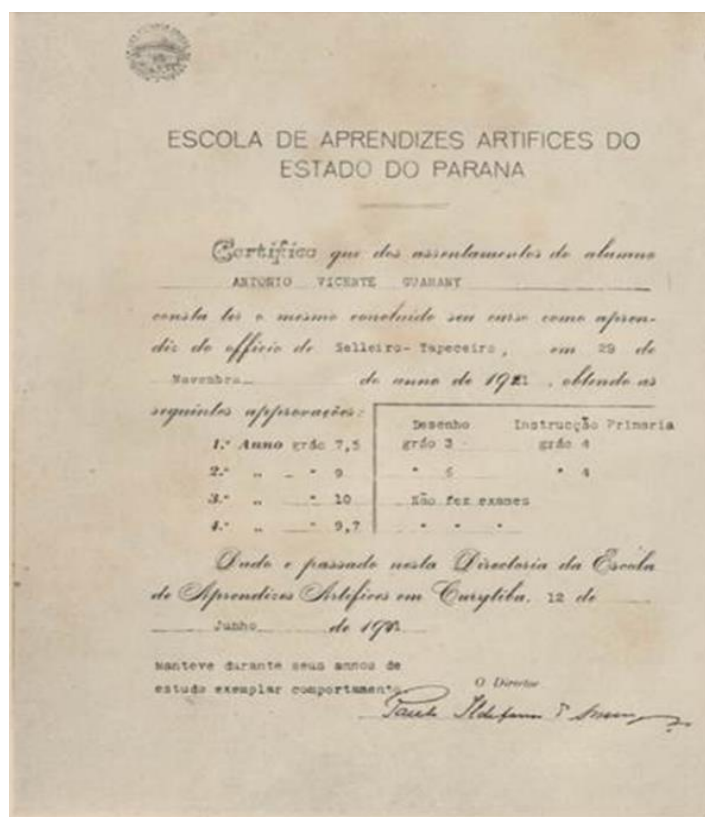 ESCOLA DE APRENDIZES ARTIFICES DO
ESTADO DO PARANA
Certifico que dos assentamentos do alumno
ANTONIO VICENTE GUARANY
consta ter o mesmo concluido seu curso como apren-
diz do officio de Selleiro-Tapeceiro, em 29 de
Novembro do anno de 19, obtendo as
seguintes approvações:
Desenho Instrucção Primaria
1.º Anno gráo 7,5 gráo 3 gráo 4
2.º " " 9 " 6 " 4
3.º " " 10 Não fez exames
4.º " " 9,7 " " "
Dado e passado nesta Directoria da Escola
de Aprendizes Artifices em Curytiba, 12 de
Junho de 19
Manteve durante seus annos de
estudo exemplar comportamento
O Director
Paulo Ildefonso